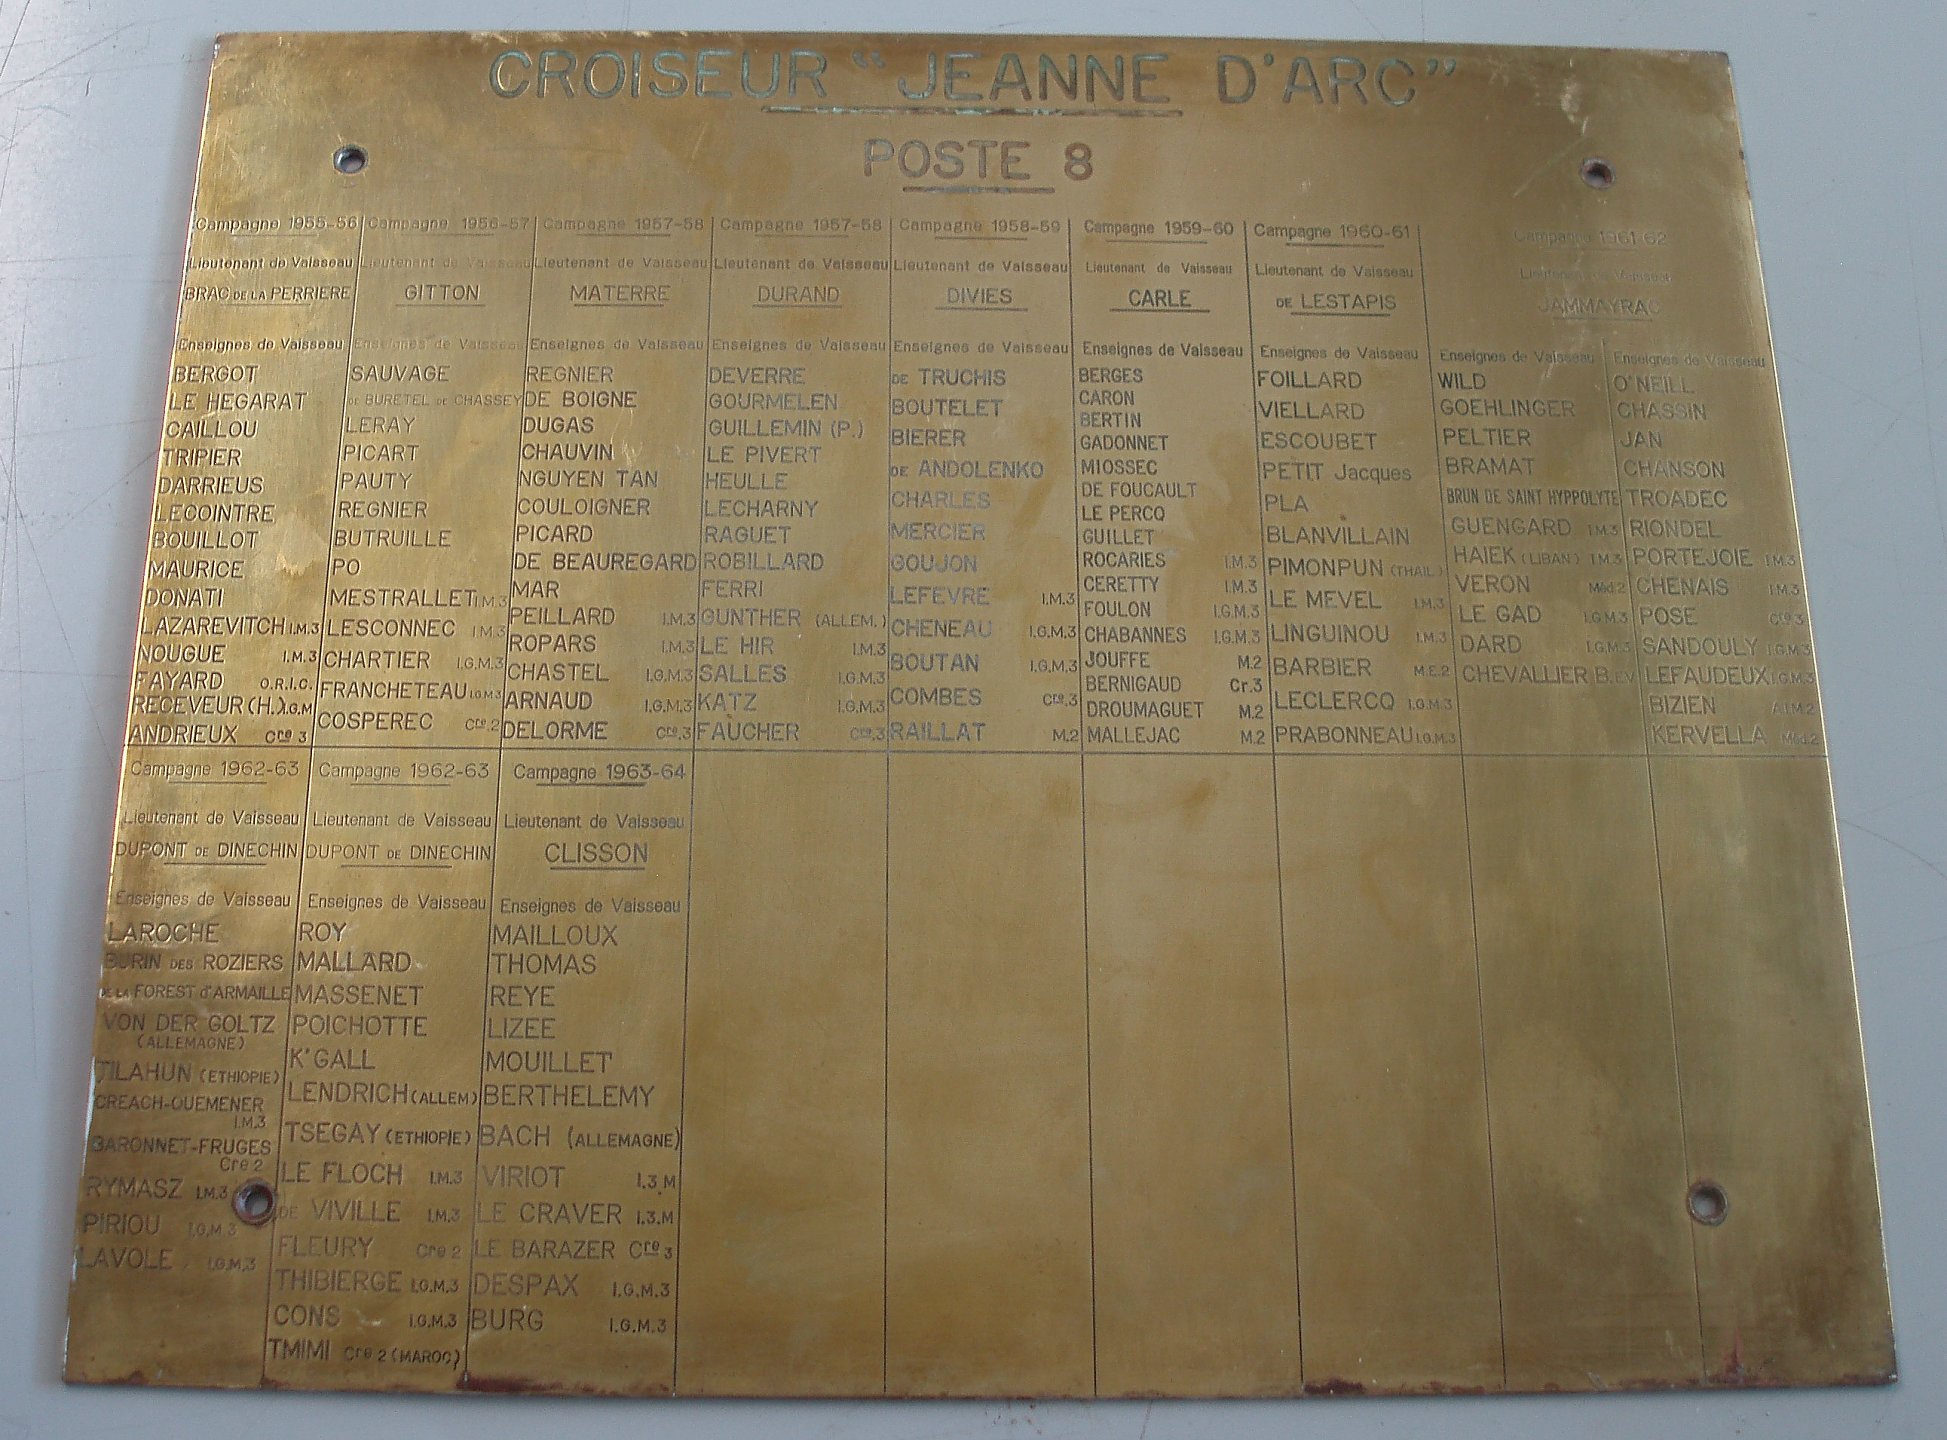 CROISEUR "JEANNE D'ARC"
POSTE 8
Campagne 1955-56
Lieutenant de Vaisseau
BRAC DE LA PERRIERE
Enseignes de Vaisseau
BERGOT
LE HEGARAT
CAILLOU
TRIPIER
DARRIEUS
LECOINTRE
BOUILLOT
MAURICE
DONATI
LAZAREVITCH I.M.3
NOUGUE I.M.3
FAYARD O.R.I.C.
RECEVEUR (H.) I.G.M
ANDRIEUX Cre 3
Campagne 1956-57
Lieutenant de Vaisseau
GITTON
Enseignes de Vaisseau
SAUVAGE
DE BURETEL DE CHASSEY
LERAY
PICART
PAUTY
REGNIER
BUTRUILLE
PO
MESTRALLET I.M.3
LESCONNEC I.M.3
CHARTIER I.G.M.3
FRANCHETEAU I.G.M.3
COSPEREC Cre.2
Campagne 1957-58
Lieutenant de Vaisseau
MATERRE
Enseignes de Vaisseau
REGNIER
DE BOIGNE
DUGAS
CHAUVIN
NGUYEN TAN
COULOIGNER
PICARD
DE BEAUREGARD
MAR
PEILLARD I.M.3
ROPARS I.M.3
CHASTEL I.G.M.3
ARNAUD I.G.M.3
DELORME Cre.3
Campagne 1957-58
Lieutenant de Vaisseau
DURAND
Enseignes de Vaisseau
DEVERRE
GOURMELEN
GUILLEMIN (P.)
LE PIVERT
HEULLE
LECHARNY
RAGUET
ROBILLARD
FERRI
GUNTHER (ALLEM.)
LE HIR I.M.3
SALLES I.G.M.3
KATZ I.G.M.3
FAUCHER Cre.3
Campagne 1958-59
Lieutenant de Vaisseau
DIVIES
Enseignes de Vaisseau
DE TRUCHIS
BOUTELET
BIERER
DE ANDOLENKO
CHARLES
MERCIER
GOUJON
LEFEVRE I.M.3
CHENEAU I.G.M.3
BOUTAN I.G.M.3
COMBES Cre.3
RAILLAT M.2
Campagne 1959-60
Lieutenant de Vaisseau
CARLE
Enseignes de Vaisseau
BERGES
CARON
BERTIN
GADONNET
MIOSSEC
DE FOUCAULT
LE PERCQ
GUILLET
ROCARIES I.M.3
CERETTY I.M.3
FOULON I.G.M.3
CHABANNES I.G.M.3
JOUFFE M.2
BERNIGAUD Cr.3
DROUMAGUET M.2
MALLEJAC M.2
Campagne 1960-61
Lieutenant de Vaisseau
DE LESTAPIS
Enseignes de Vaisseau
FOILLARD
VIELLARD
ESCOUBET
PETIT Jacques
PLA
BLANVILLAIN
PIMONPUN (THAIL.)
LE MEVEL I.M.3
LINGUINOU I.M.3
BARBIER M.E.2
LECLERCQ I.G.M.3
PRABONNEAU I.G.M.3
Campagne 1961-62
Lieutenant de Vaisseau
JAMMAYRAC
Enseignes de Vaisseau
WILD
GOEHLINGER
PELTIER
BRAMAT
BRUN DE SAINT HYPPOLYTE
GUENGARD I.M.3
HAIEK (LIBAN) I.M.3
VERON Méd.2
LE GAD I.G.M.3
DARD I.G.M.3
CHEVALLIER B.EV
Enseignes de Vaisseau
O'NEILL
CHASSIN
JAN
CHANSON
TROADEC
RIONDEL
PORTEJOIE I.M.3
CHENAIS I.M.3
POSE Cre.3
SANDOULY I.G.M.3
LEFAUDEUX I.G.M.3
BIZIEN A.I.M.2
KERVELLA Méd.2
Campagne 1962-63
Lieutenant de Vaisseau
DUPONT DE DINECHIN
Enseignes de Vaisseau
LAROCHE
BURIN DES ROZIERS
DE LA FOREST d'ARMAILLE
VON DER GOLTZ
(ALLEMAGNE)
TILAHUN (ETHIOPIE)
CREACH-QUEMENER
I.M.3
BARONNET-FRUGES
Cre 2
RYMASZ I.M.3
PIRIOU I.G.M.3
LAVOLE I.G.M.3
Campagne 1962-63
Lieutenant de Vaisseau
DUPONT DE DINECHIN
Enseignes de Vaisseau
ROY
MALLARD
MASSENET
POICHOTTE
K'GALL
LENDRICH (ALLEM)
TSEGAY (ETHIOPIE)
LE FLOCH I.M.3
DE VIVILLE I.M.3
FLEURY Cre 2
THIBIERGE I.G.M.3
CONS I.G.M.3
TMIMI Cre 2 (MAROC)
Campagne 1963-64
Lieutenant de Vaisseau
CLISSON
Enseignes de Vaisseau
MAILLOUX
THOMAS
REYE
LIZEE
MOUILLET
BERTHELEMY
BACH (ALLEMAGNE)
VIRIOT I.3.M
LE CRAVER I.3.M
LE BARAZER Cre 3
DESPAX I.G.M.3
BURG I.G.M.3